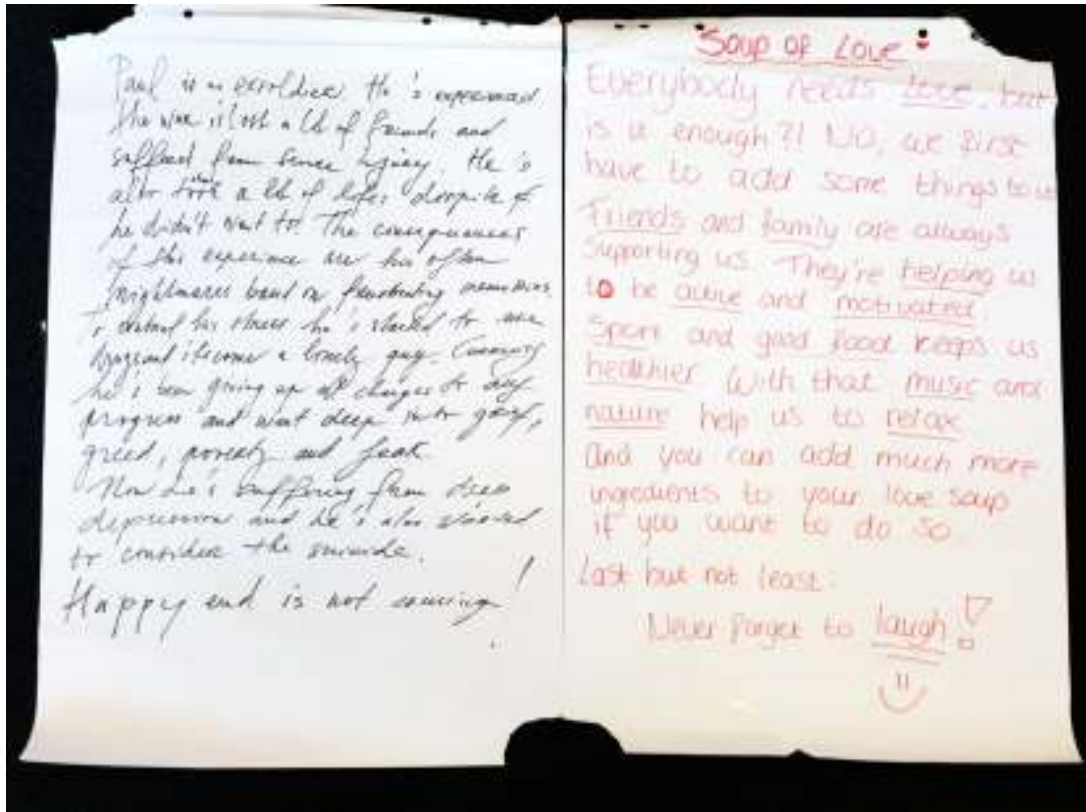 Paul is an exsoldier. He's experienced
the war & lost a lot of friends and
suffered from injury. He is
also took a lot of lifes despite of
he didn't want to. The consequences
of this experience are his often
nightmares based on memories.
To his stress he's started to use
become a lonely guy.
he's been giving up all to any
progress and went deep into
greed, poverty and
Now he's suffering from deep
depression and he's also started
to consider the suicide.
Happy end is not coming!
Soup of Love
Everybody needs love, but
is it enough?! NO, we first
have to add some things to it
Friends and family are always
supporting us. They're helping us
to be active and motivated.
Sport and good food keeps us
healthier With that music and
nature help us to relax
And you can add much more
ingredients to your love soup
if you want to do so
Last but not least:
Never forget to laugh!